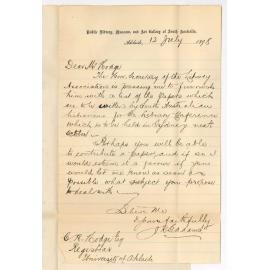 Public Library, Museum, and Art Gallery of South Australia.
Adelaide, 13 July 1898
Dear Mr Hodge
The Hon. Secretary of the Library
Association is pressing me to furnish
him with a list of the papers which are
to be written by South Australian
librarians for the Library Conference
which is to be held in Sydney next
October.
Perhaps you will be able
to contribute a paper, and if so I
would esteem it a favour if you
would let me know as soon as
possible what subject you propose
to deal with.
Believe me
Yours faithfully
C. R. Hodge Esq
Registrar
University of Adelaide